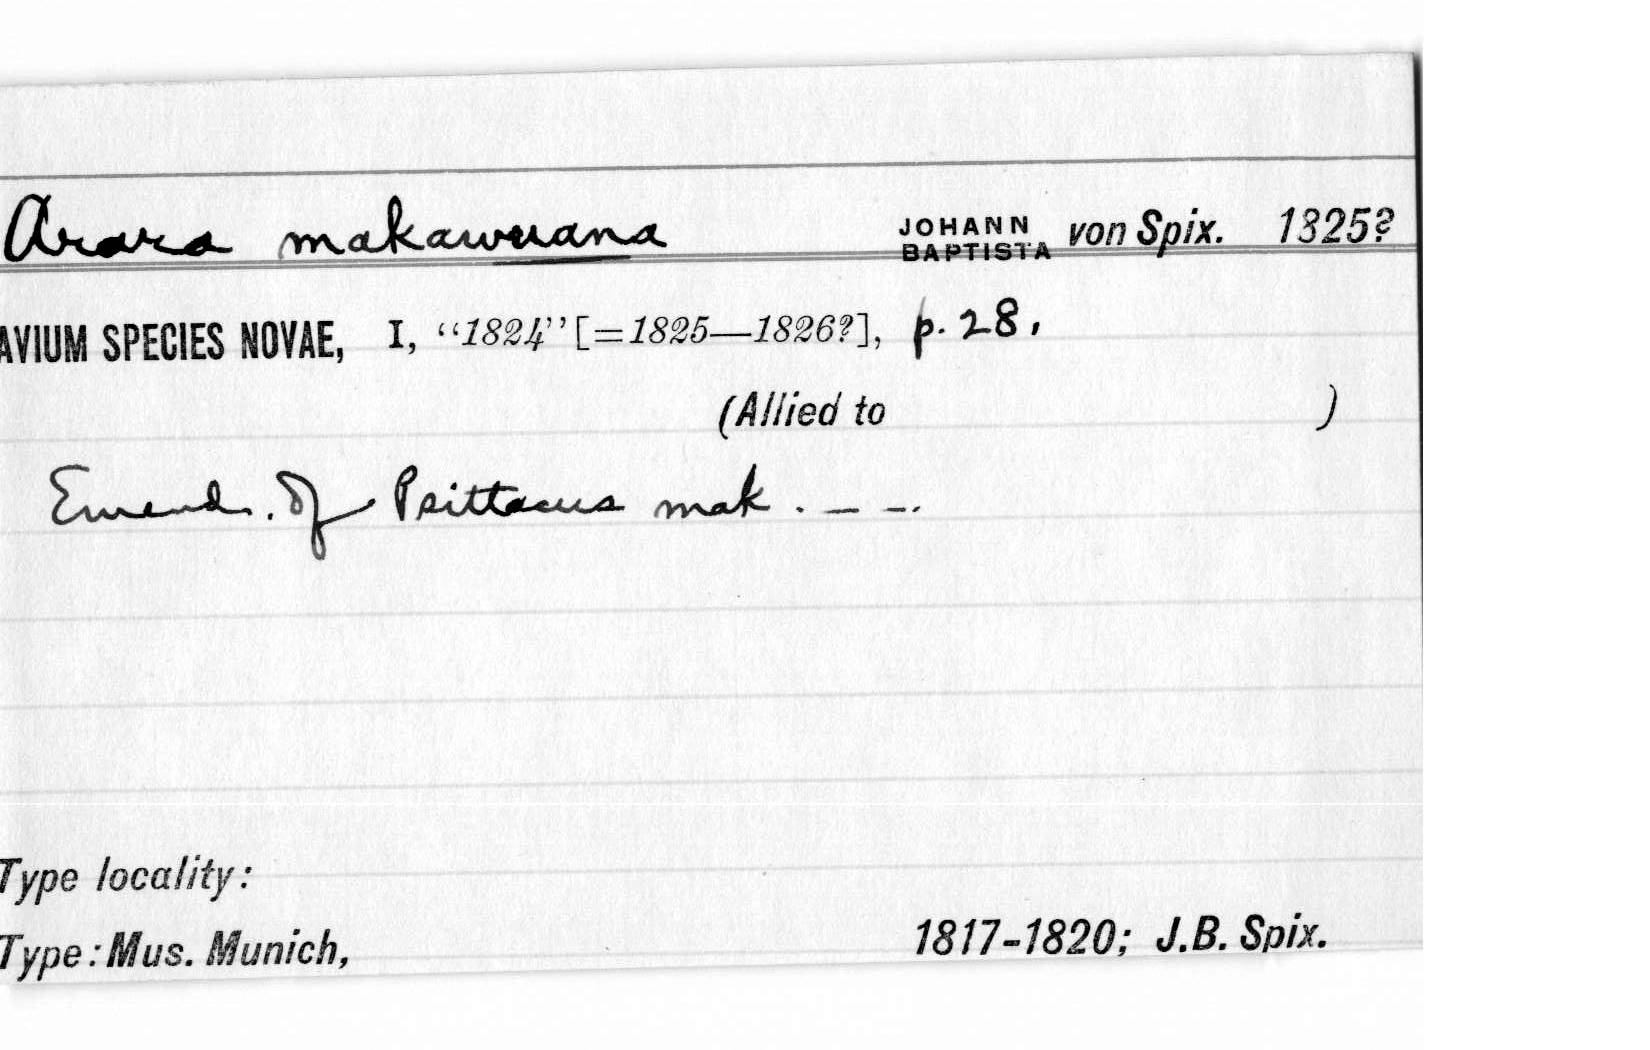 Arara makawuana JOHANN BAPTISTA von Spix. 1825?
AVIUM SPECIES NOVAE, I, “1824” [=1825—1826?], p. 28.
(Allied to )
Emend. of Psittacus mak . _ _ .
Type locality:
Type: Mus. Munich, 1817-1820; J.B. Spix.